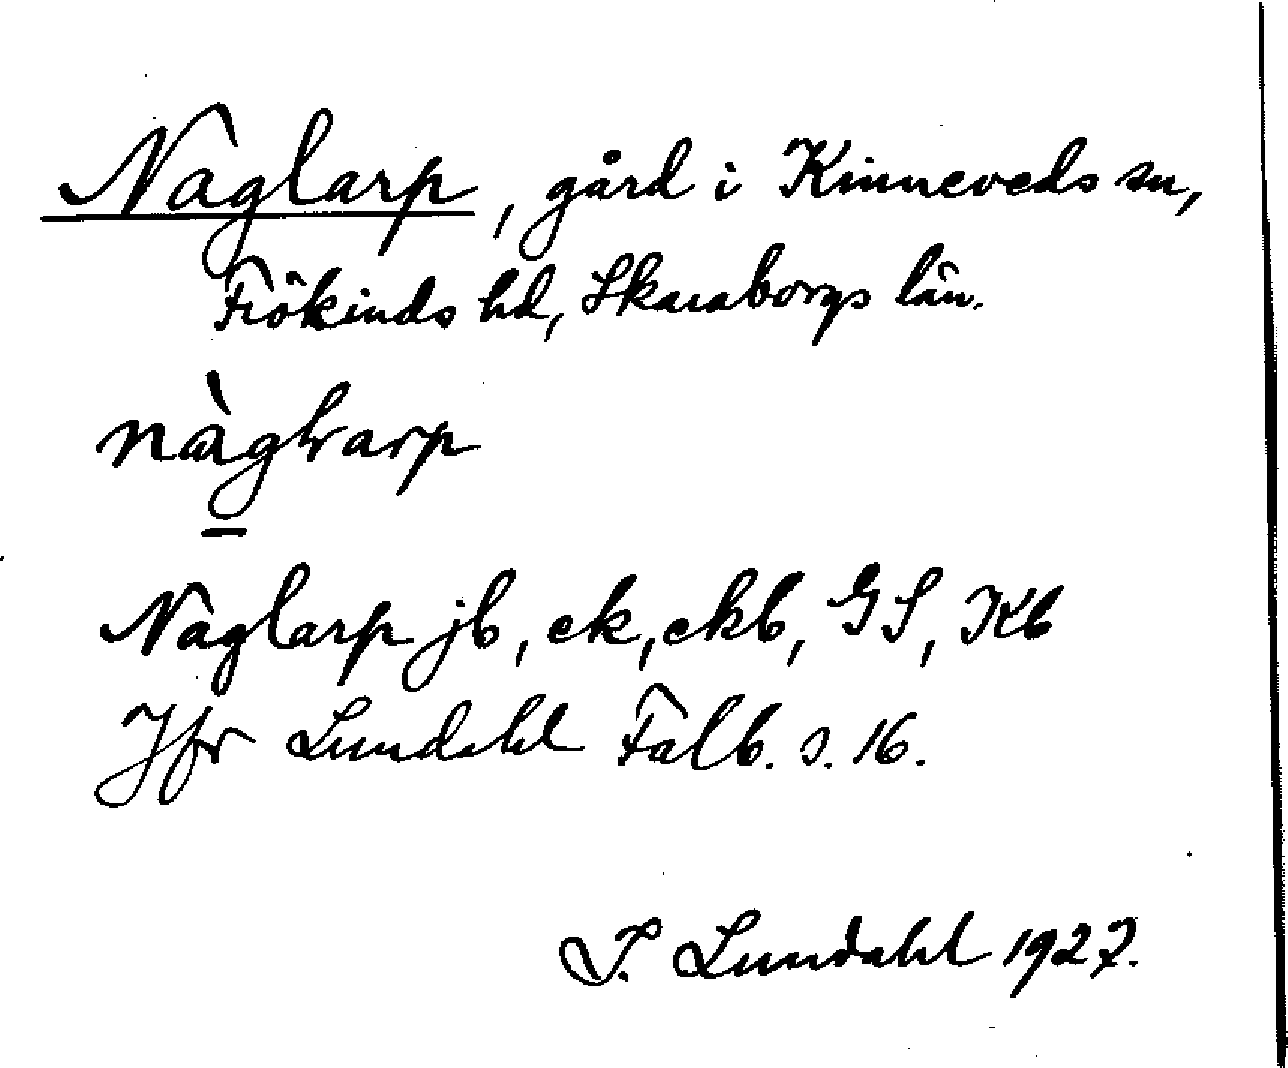 Naglarp, gård i Kinneveds sn,
Frökinds hd, Skaraborgs län.
Naglarp jb, ek, ekb, GS, Kb
Jfr Lundahl Falb. s. 16.
I. Lundahl 1927.